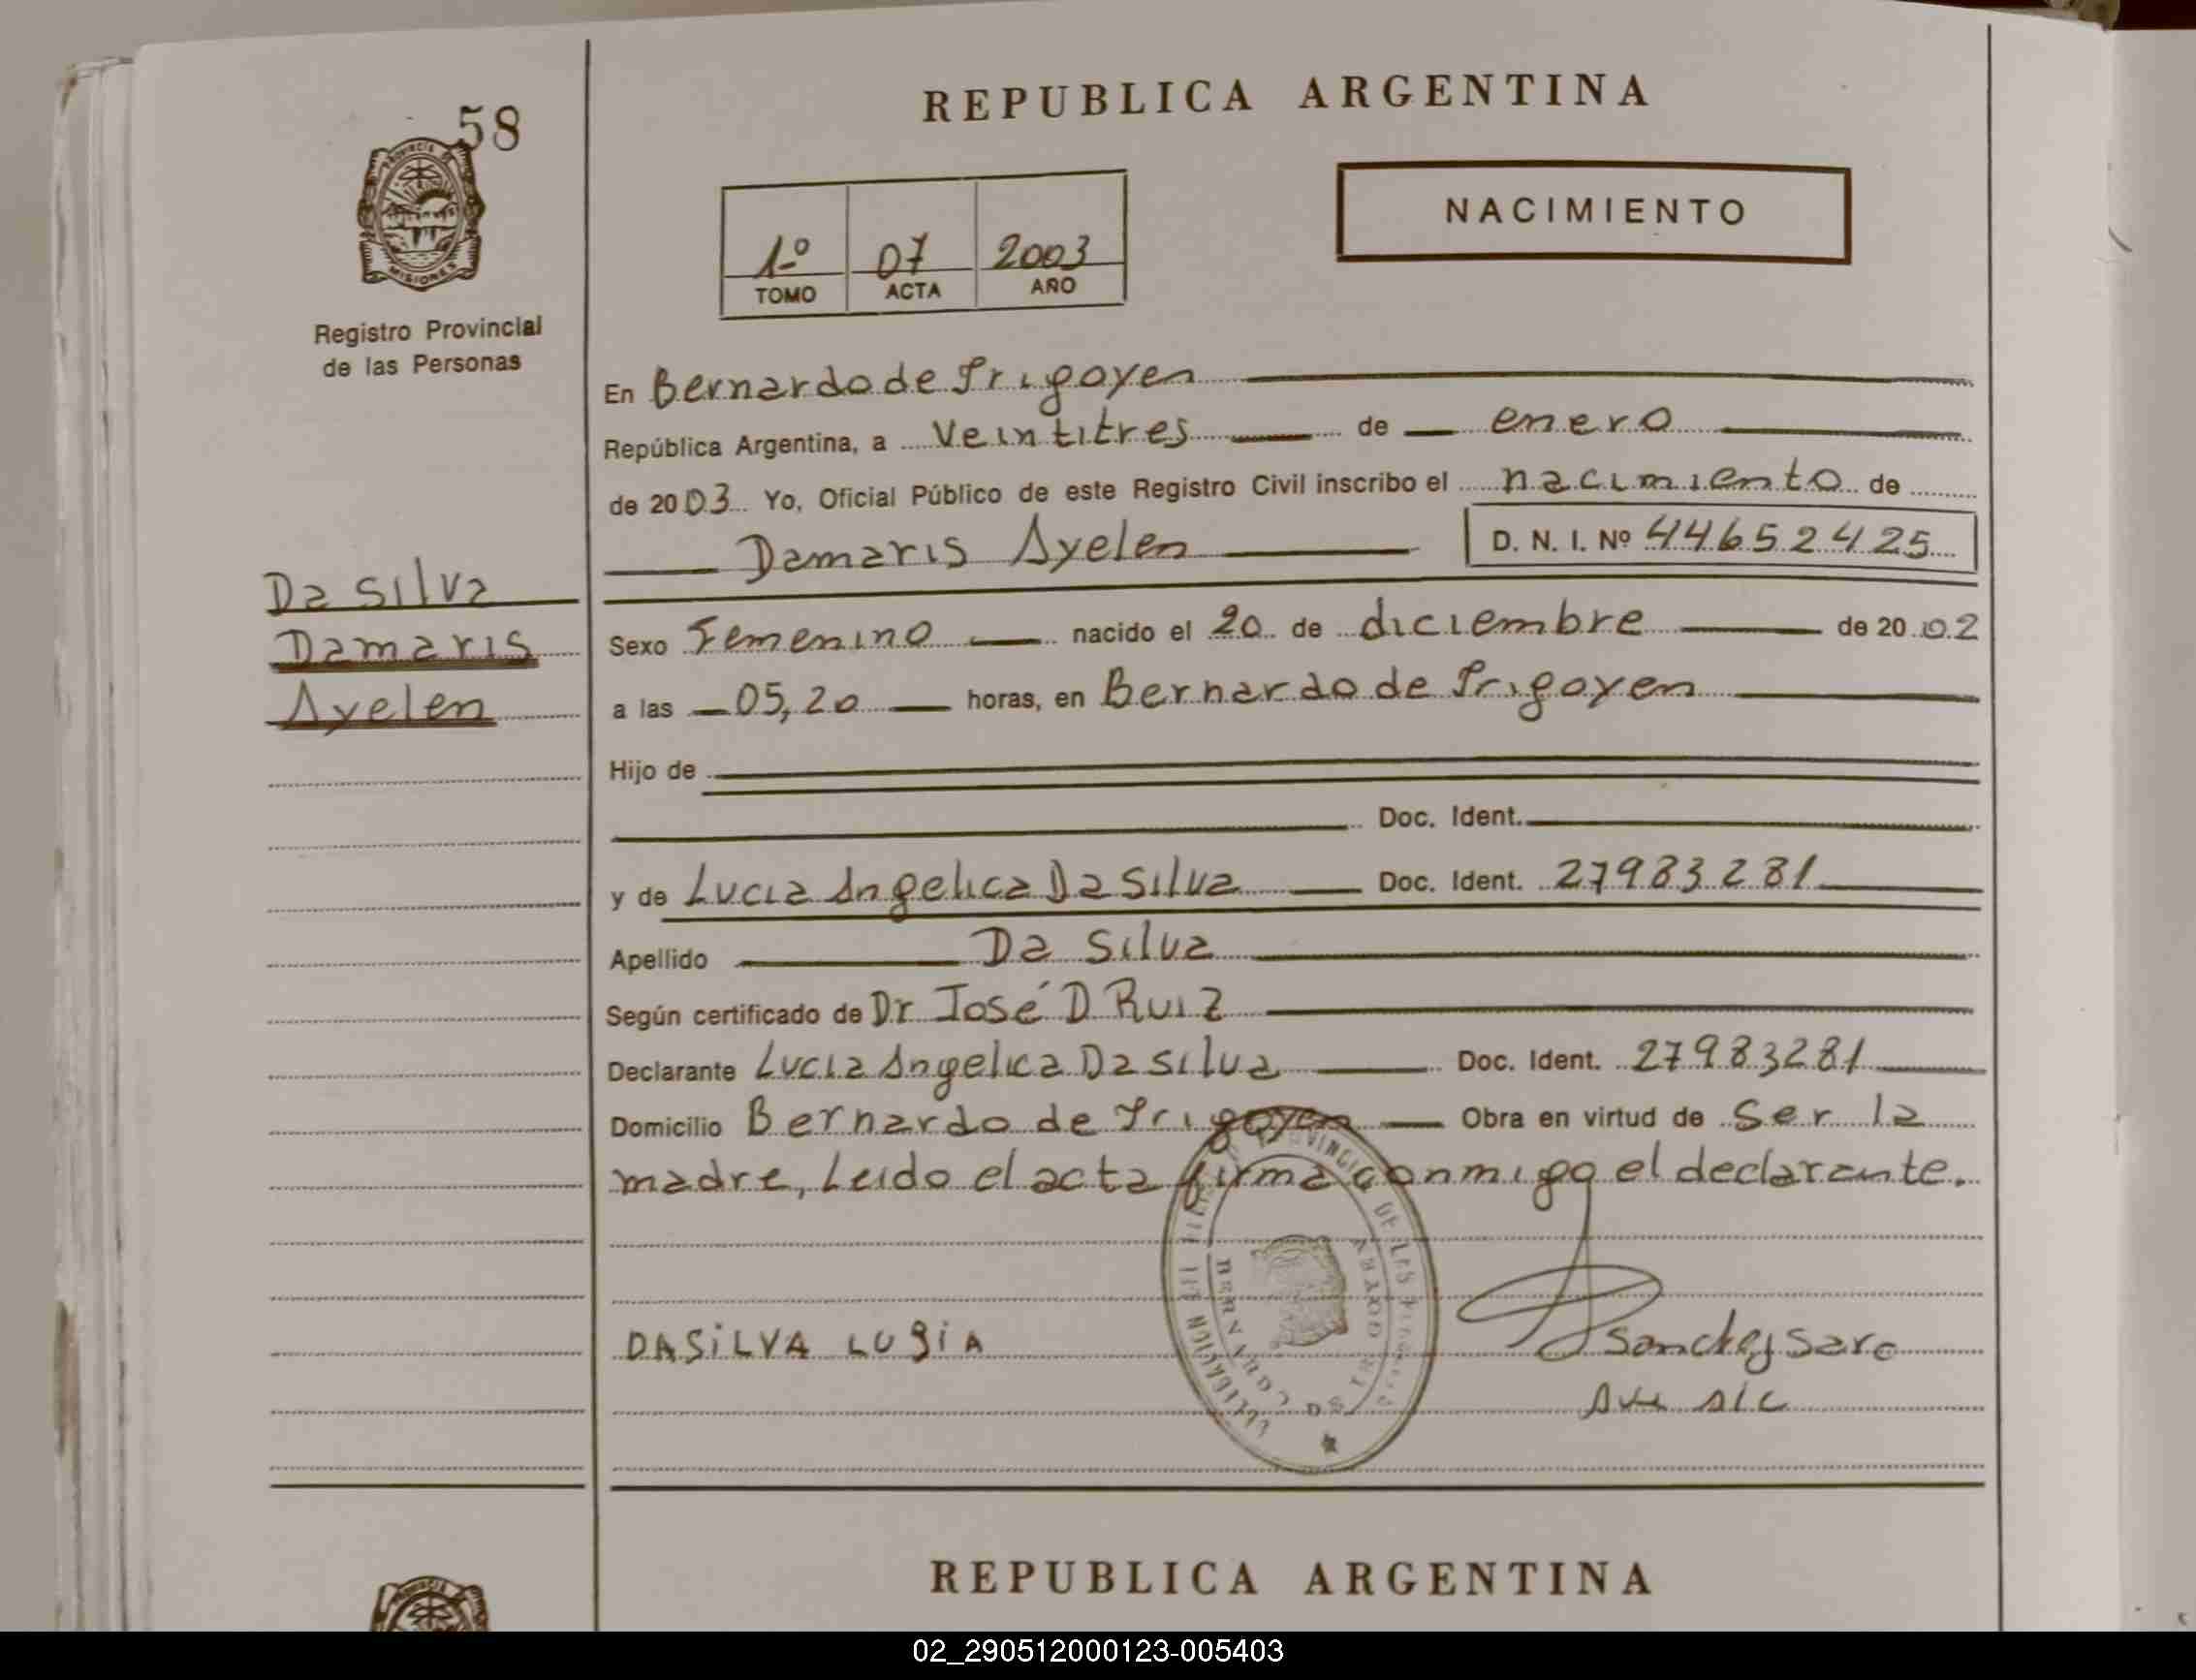 58
PROVINCIA DE
MISIONES
Registro Provincial
de las Personas
Da Silva
Damaris
Ayelen
REPUBLICA ARGENTINA
NACIMIENTO
1º 07 2003
TOMO ACTA AÑO
En Bernardo de Irigoyen
República Argentina, a Veintitres de enero
de 2003 Yo, Oficial Público de este Registro Civil inscribo el nacimiento de
Damaris Ayelen D. N. I. Nº 44652425
Sexo Femenino nacido el 20 de diciembre de 2002
a las 05,20 horas, en Bernardo de Irigoyen
Hijo de
Doc. Ident.
y de Lucia Angelica Da Silva Doc. Ident. 27983281
Apellido Da Silva
Según certificado de Dr José D Ruiz
Declarante Lucia Angelica Da Silva Doc. Ident. 27983281
Domicilio Bernardo de Irigoyen Obra en virtud de Ser la
madre, Leido el acta firma conmigo el declarante.
DASILVA LUSiA
Sanchez Sara
REPUBLICA ARGENTINA
02_290512000123-005403